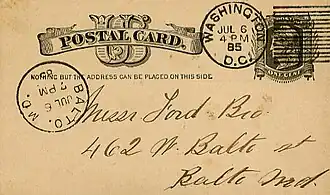 US
POSTAL CARD.
NOTHING BUT THE ADDRESS CAN BE PLACED ON THIS SIDE.
WASHINGTON
JUL 6
4 PM
85
D.C.
ONE CENT
BALTO. MD.
JUL 6
7 PM
Messr Ford Bro
462 W. Balto st
Balto Md.